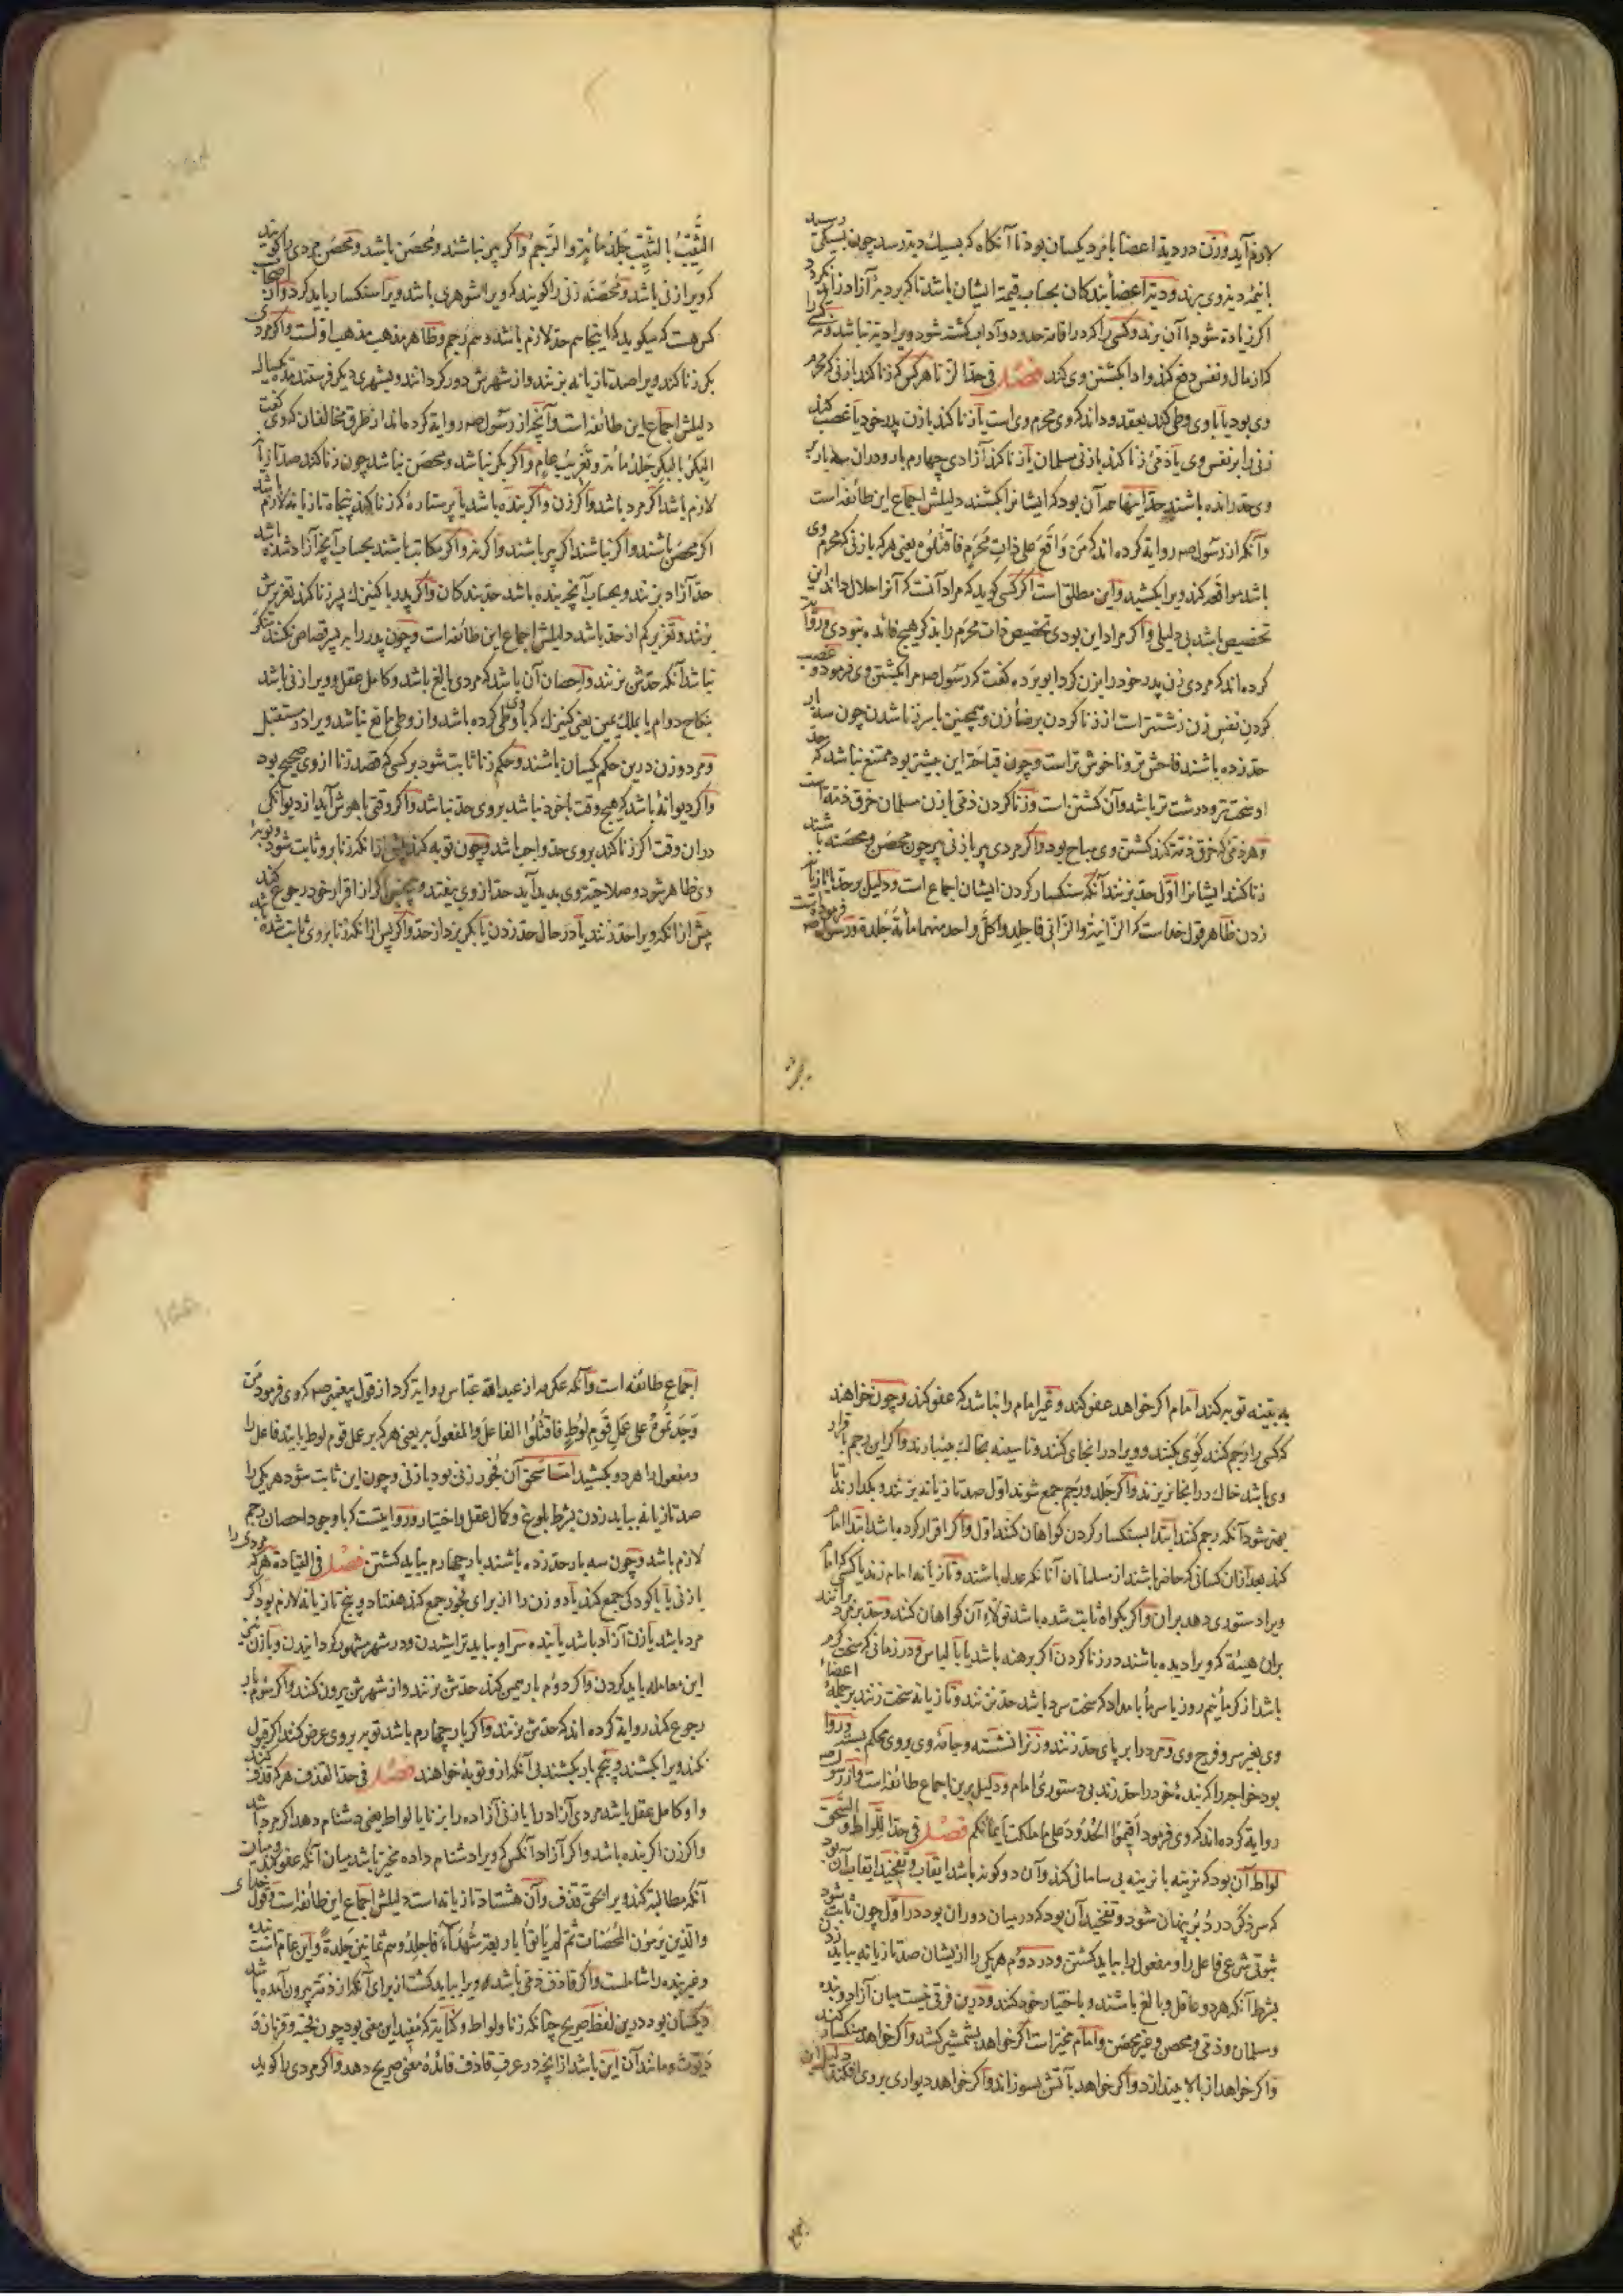 لازم آید وزن در دیة اعضا با مرد یکسان بود تا آنگاه که بسیك دیة رسد چون بسیکی رسید
با نیمۀ دیة وی برند و دیة اعضأ بندکان بحساب قیمة ایشان باشد تا که بر دیة آزاد زاید نکردد
اکر زیادة شود با آن برند و کسی را که در اقامة حدود و آداب کشته شود ویرا دیة نباشد و هر کسی را
که از مال و نفس دفع کند و ادا بکشتن وی کند فصل فی حد الزنا هر کس که زنا کند با زنی که محرم
وی بود یا با وی وطی کند بعقد و داند که وی محرم وی است یا زنا کند با زن پدر خود یا غصب کند
زنی را بر نفس وی یا ذمی زنا کند با زنی مسلمان یا زنا کند آزادی چهارم بار و در آن سه بار بر
وی حد رانده باشند حد اینها همه آن بود که ایشانرا بکشند دلیلش اجماع این طائفه است
و آنکه از رسول صم روایة کرده اند که من وَاقَعَ علی ذاتِ مَحْرَمٍ فَاقتُلُوه یعنی هر که با زنی که محرم وی
باشد مواقعه کند ویرا بکشید و این مطلق است اکر کسی کوید که مراد آنست که آنرا حلال داند این
تخصیص باشد بی دلیلی و اکر مراد این بودی تخصیص ذات محرم را بذکر هیچ فائده نبودی و روایة
کرده اند که مردی زن پدر خود را بزن کرد ابو بردة گفت که رسول صم مرا بکشتن وی فرمود و غصب
کردن نفس زن زشتتر است از زنا کردن برضأ زن و همچنین با سر زنا شدن چون سه بار
حد زده باشند فاحش تر و ناخوش تر است و چون قباحة این بیشتر بود ممتنع نباشد که حد
او سخت تر و درشت تر باشد و آن کشتن است و زنا کردن ذمی با زن مسلمان خرق ذمة است
و هر ذمی که خرق ذمة کند کشتن وی مباح بود و اکر مردی پیر با زنی پیر چون محصن و محصنه باشند
زنا کنند ایشانرا اول حد بزنند آنکه سنکسار کردن ایشان اجماع است و دلیل بر حد تازیانه
زدن ظاهر قول خداست که الزّانیة والزّانی فاجلدوا کلّ واحد منهما مائة جَلدة و رسول صم فرموده است
الثَّیِّبُ بِالثَّیِّبِ جَلدُ مائةٍ والرّجمُ و اکر پیر نباشند و محصن باشند و محصن مردی را کویند
که ویرا زنی باشد و محصنه زنی را کویند که ویرا شوهری باشد ویرا سنکسار باید کرد و از اصحاب ما
کس هست که میکوید که اینجا هم حد لازم باشد و هم رجم و ظاهر مذهب مذهب اولست و اکر مردی
بکر زنا کند ویرا صد تازیانه بزنند و از شهرش دور کردانند و بشهری دیکر فرستند مدة یکساله
دلیلش اجماع این طائفه است و آنچه از رسول صم روایة کرده اند از طرق مخالفان که وی کفت
البکرُ بِالبکرِ جَلدُ مائةٍ وتَغریبُ عامٍ و اکر بکر نباشد و محصن نباشد چون زنا کند صد تازیانه
لازم باشد اکر مرد باشد و اکر زن و اکر بنده باشد یا پرستاره که زنا کند پنجاه تازیانه لازم باشد
اکر محصن باشند و اکر نباشند اکر پیر باشند و اکر نه و اکر مکاتب باشند بحساب آنچه آزاد شده باشد
حد آزاد بزنند و بحساب آنچه بنده باشد حد بندکان و اکر پدر با کنیزك پسر زنا کند تعزیرش
بزنند و تعزیر کم از حد باشد دلیلش اجماع این طائفه است و چون پدر را به پسر قصاص نکنند منکر
نباشد آنکه حدش نزنند و احصان آن باشد که مردی بالغ باشد و کامل عقل و ویرا زنی باشد
بنکاح دوام یا بملك یمین یعنی کنیزك که با وی وطی کرده باشد و از وطی مانع نباشد ویرا در مستقبل
و مرد و زن درین حکم یکسان باشند و حکم زنا ثابت شود بر کسی که قصد زنا از وی صحیح بود
و اکر دیوانۀ باشد که هیچ وقت باخود نباشد بر وی حد نباشد و اکر وقتی باهوش آید از دیوانکی
در ان وقت اکر زنا کند بر وی حد واجب باشد و چون توبه کند پیش از انکه زنا برو ثابت شود و توبۀ
وی ظاهر شود و صلاحیة وی پدید آید حد از وی بیفتد و همچنین اکر از اقرار خود رجوع کند
پیش از انکه ویرا حد زنند یا در حال حد زدن یا بکریزد از حد و اکر پس از انکه زنا بر وی ثابت شده باشد
به بینه توبه کند امام اکر خواهد عفو کند و غیر امام را نباشد که عفو کند و چون خواهند
که کسی را رجم کنند کوی بکنند و ویرا در انجای کنند و تا سینه بخاك بینبارند و اکر این رجم باقرار
وی باشد خاك در انجا نریزند و اکر جلد و رجم جمع شوند اول صد تازیانه بزنند و بکذارند تا
بهتر شود آنکه رجم کنند ابتدا بسنکسار کردن کواهان کنند اول و اکر اقرار کرده باشد ابتدا امام
کند بعد از ان کسانی که حاضر باشند از مسلمانان آنانکه عدل باشند و تازیانه امام زند یا کسی که امام
ویرا دستوری دهد بران و اکر بکواه ثابت شده باشد تولاء آن کواهان کنند و حد بزنند مرد برانند
بران هیئة که ویرا دیده باشند در زنا کردن اکر برهنه باشد یا با لباس و در زمانی که سخت کرم
باشد از کرما نیم روز یا سرما بامداد که سخت سرد باشد حد نزنند و تازیانه سخت زنند بر جملۀ اعضاء
وی بغیر سر و فرج وی و مرد را بر پای حد زنند و زنرا نشسته و جامۀ وی بر وی محکم ببندند و روا
بود خواجه را که بندۀ خود را حد زند بی دستوری امام و دلیل برین اجماع طائفه است و از رسول صم
روایة کرده اند که وی فرمود اَقیمُوا الحُدُودَ علی ما ملکت اَیمانکم فصل فی حد اللواط والسحق
لواط آن بود که نرینه با نرینه بی سامانی کند و آن دو کونه باشد ایقاب و تفخیذ ایقاب آن بود
که سر ذکر در دُبُر پنهان شود و تفخیذ آن بود که در میان دو ران بود در اوّل چون ثابت شود
ثبوتی شرعی فاعل را و مفعول را بباید کشتن و در دوم هر یکی را از ایشان صد تازیانه بباید زد
بشرط آنکه هر دو عاقل و بالغ باشند و باختیار خود کنند و درین فرقی نیست میان آزاد و بنده
و مسلمان و ذمی و محصن و غیر محصن و امام مخیر است اکر خواهد بشمشیر کشد و اکر خواهد سنکسار کند
و اکر خواهد از بالا بیندازد و اکر خواهد بآتش بسوزاند و اکر خواهد دیواری بر وی افکند دلیل این
اجماع طائفه است و آنکه عکرمه از عبدالله عباس روایة کرد از قول پیغمبر صم که وی فرمود من
وَجَدتُموهُ علی عَمَلِ قومِ لُوطٍ فاقتُلُوا الفاعلَ والمفعولَ به یعنی هر که بر عمل قوم لوط یابید فاعل را
و مفعول را هر دو بکشید امّا سَحق آن فجور زنی بود با زنی و چون این ثابت شود هر یکی را
صد تازیانه بباید زدن بشرط بلوغ و کمال عقل و اختیار و روایتست که با وجود احصان رجم
لازم باشد و چون سه بار حد زده باشند بار چهارم بباید کشتن فصل فی القیادة هر که مردی را
با زنی یا با کودکی جمع کند یا دو زن را از برای فجور جمع کند هفتاد و پنج تازیانه لازم بود اکر
مرد باشد یا زن آزاد باشد یا بنده سر او بباید تراشیدن و در شهر مشهور کردانیدن و با زن نه
این معامله باید کردن و اکر دوم بار همین کند حدش بزنند و از شهرش بیرون کنند و اکر سوم بار
رجوع کند روایة کرده اند که حدش بزنند و اکر بار چهارم باشد توبه بر وی عرض کنند اکر قبول
نکند ویرا بکشند و پنجم بار بکشند بی آنکه از و توبه خواهند فصل فی حد القذف هر که قذف کند
و او کامل عقل باشد مردی آزاد را یا زنی آزاده را بزنا یا لواط یعنی دشنام دهد اکر مرد باشد
و اکر زن اکر بنده باشد و اکر آزاد آنکس که ویرا دشنام داده مخیر باشد میان آنکه عفو کند و میان
آنکه مطالبة کند ویرا بحق قذف و آن هشتاد تازیانه است دلیلش اجماع این طائفه است و قول خدای
والّذین یَرمُونَ المُحصَنات ثمّ لم یأتوا باربعة شُهَدآءَ فاجلِدُوهم ثمانینَ جَلدةً و این عام است بنده
و غیر بنده را شاملست و اکر قاذف ذمی باشد ویرا بباید کشت از برای آنکه از ذمة بیرون آمده باشد
و یکسان بود درین لفظ صریح چنانکه زنا و لواط و کنایة که مفید این معنی بود چون قحبه و قرنان و
دیّوث و مانند آن این باشد از انچه در عرف قاذف فائدۀ معنی صریح دهد و اکر مردی را کوید